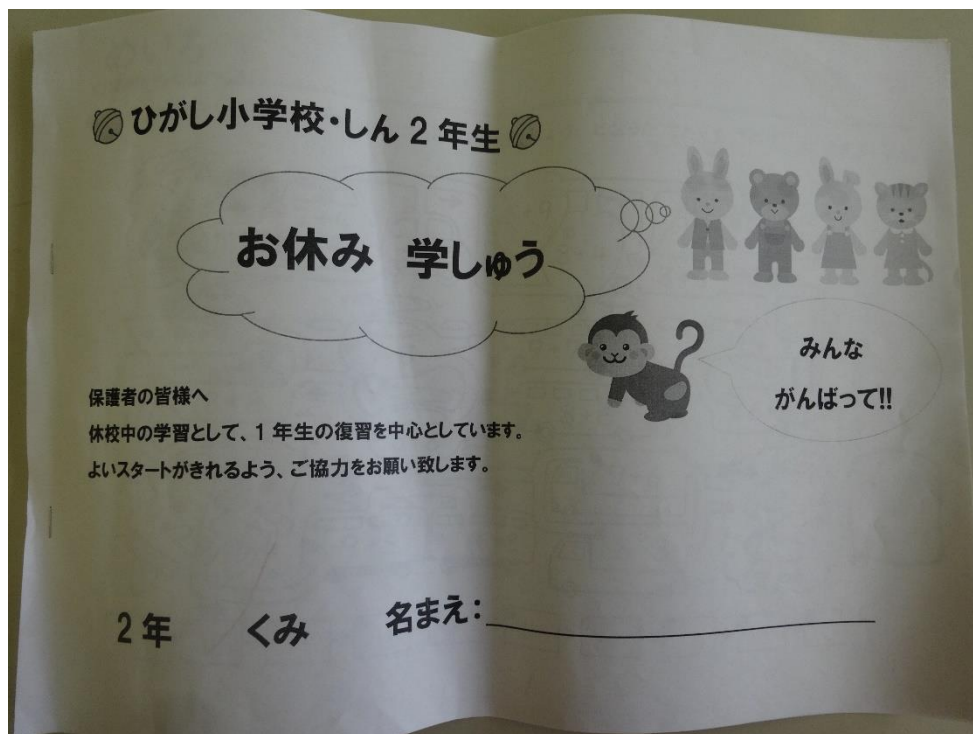 ひがし小学校・しん2年生
お休み 学しゅう
みんな
がんばって!!
保護者の皆様へ
休校中の学習として、1年生の復習を中心としています。
よいスタートがきれるよう、ご協力をお願い致します。
2年 くみ 名まえ: